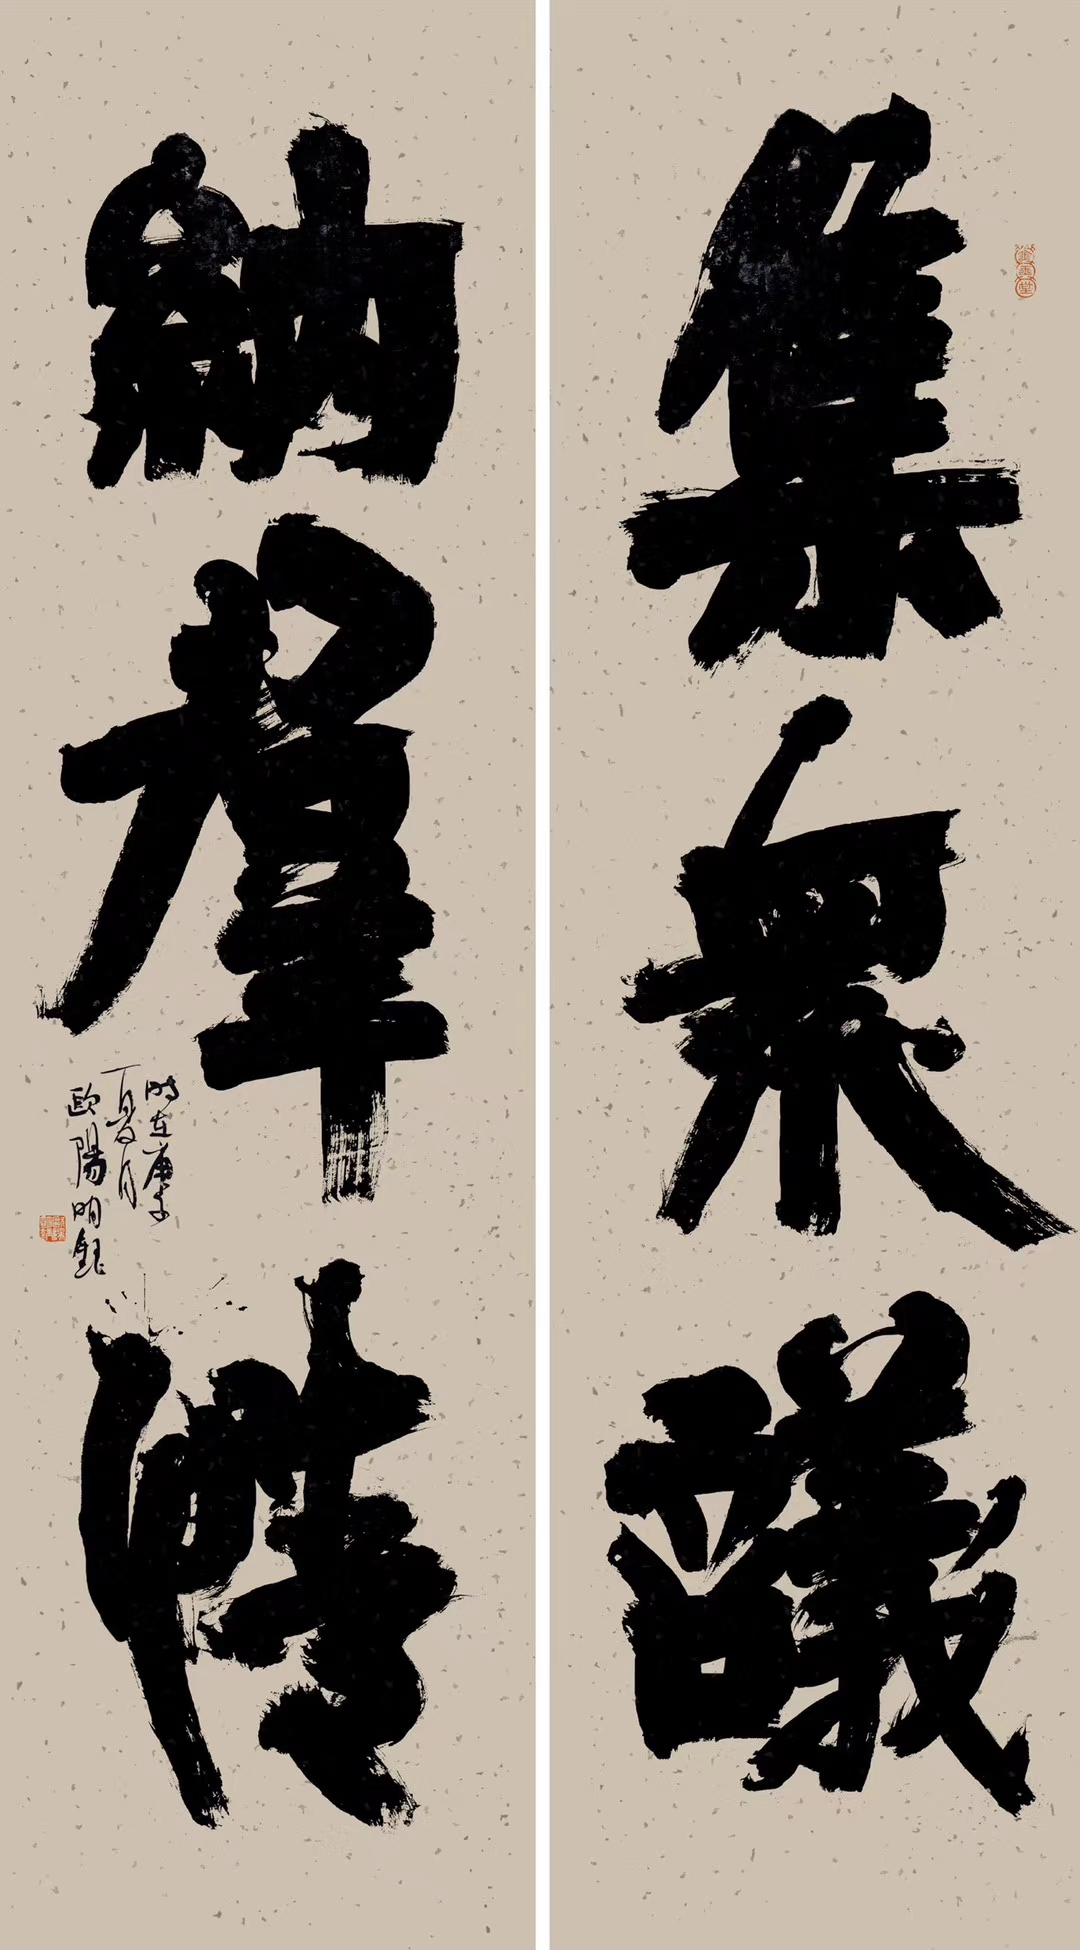 集衆議
納羣情
時在庚子
夏月
歐陽明鈺